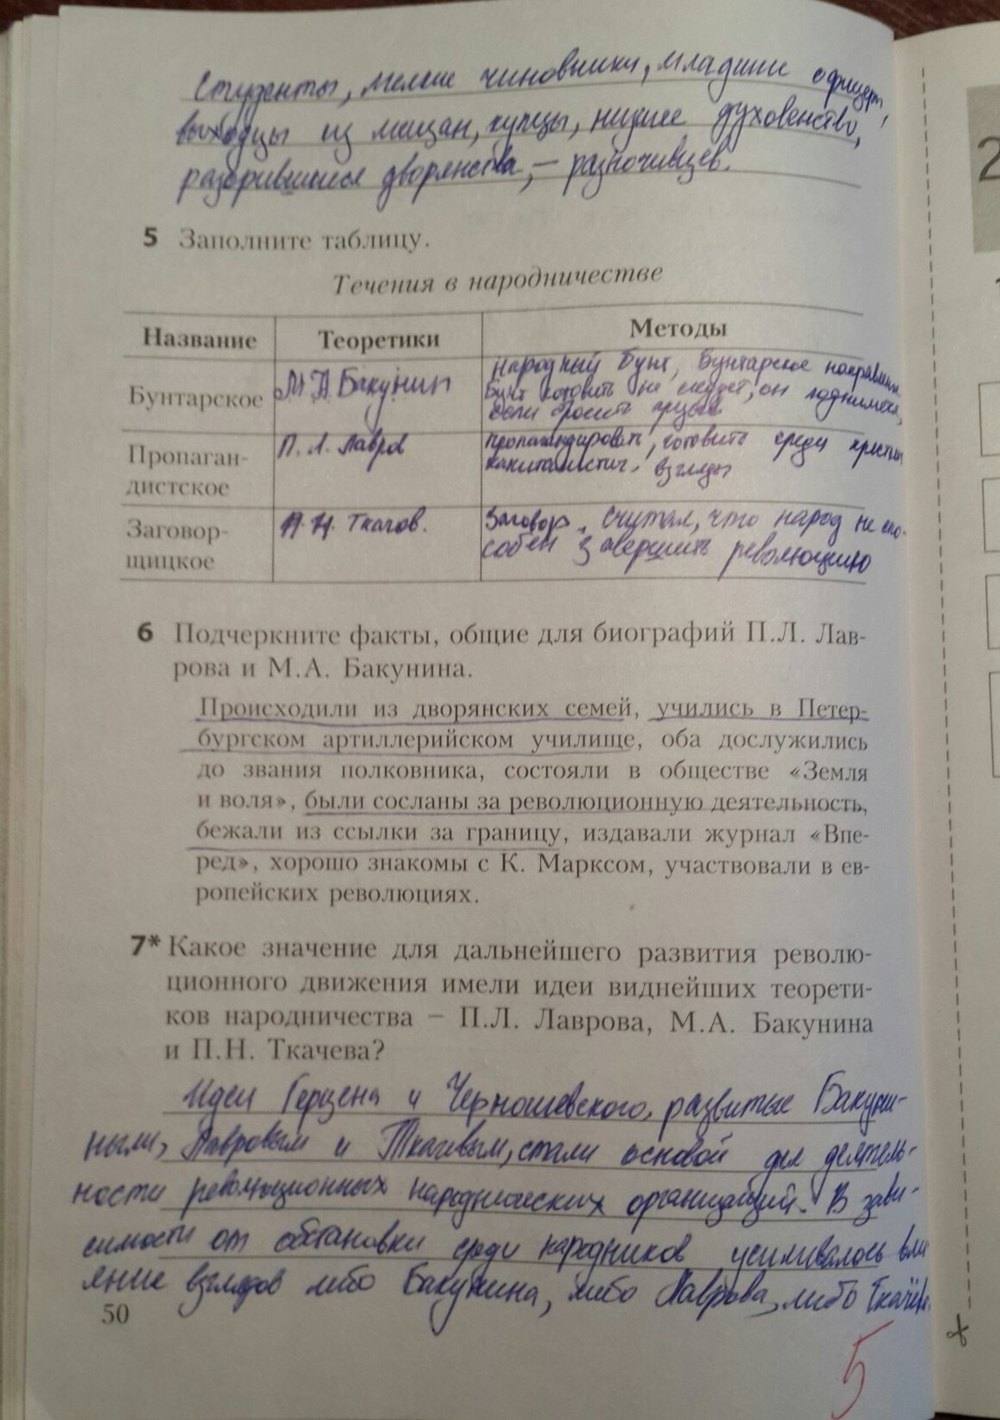 Студенты, мелкие чиновники, младшие офицеры,
выходцы из мещан, купцы, низшее духовенство,
разорившиеся дворянства, – разночинцев.
5 Заполните таблицу.
Течения в народничестве
Название Теоретики Методы
Бунтарское М.А. Бакунин народный бунт, Бунтарское направлен
Бунт готовить не следует, он поднимется,
если бросить
Пропаган-
дистское П. Л. Лавров пропагандировать, готовить среди крестьян
взгляды
Заговор-
щицкое П. Н. Ткачов. Заговор. Считал, что народ не спо-
собен завершить революцию
6 Подчеркните факты, общие для биографий П.Л. Лав-
рова и М.А. Бакунина.
Происходили из дворянских семей, учились в Петер-
бургском артиллерийском училище, оба дослужились
до звания полковника, состояли в обществе «Земля
и воля», были сосланы за революционную деятельность,
бежали из ссылки за границу, издавали журнал «Впе-
ред», хорошо знакомы с К. Марксом, участвовали в ев-
ропейских революциях.
7* Какое значение для дальнейшего развития револю-
ционного движения имели идеи виднейших теорети-
ков народничества – П.Л. Лаврова, М.А. Бакунина
и П.Н. Ткачева?
Идеи Герцена и Чернышевского, развитые Бакуни-
ными, Лавровым и Ткачёвым, стали основой для деятель-
ности революционных народнических организаций. В зави-
симости от обстановки среди народников усиливалось вли
яние взглядов либо Бакунина, либо Лаврова, либо Ткачёва
50
5
2